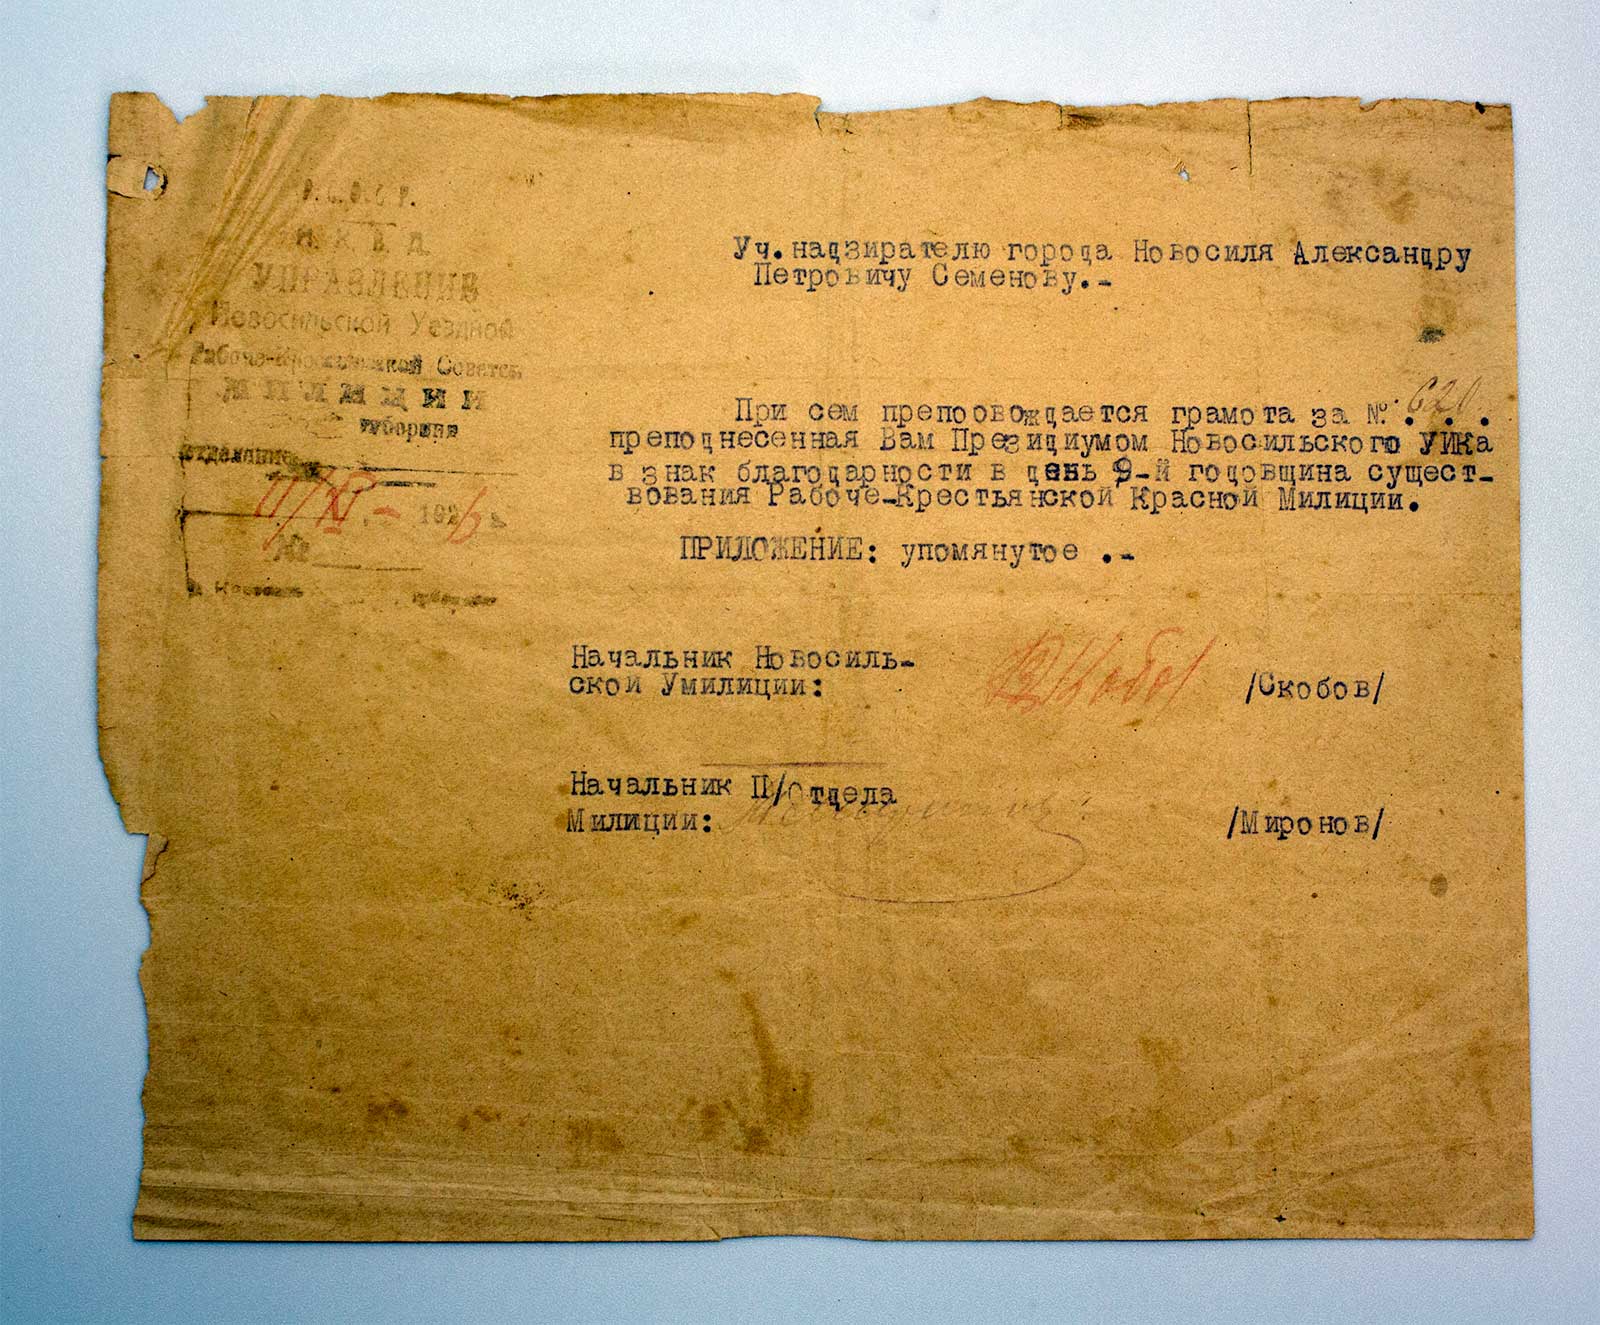 Р.С.Ф.С.Р.
Н.К.В.Д.
УПРАВЛЕНИЕ
Новосильской Уездной
Рабоче-Крестьянской Советск.
МИЛИЦИИ
губернии
отделение
11/XI - 1926 г.
№
губернии
Уч.надзирателю города Новосиля Александру
Петровичу Семенову.-
При сем препоовождается грамота за №.620.
преподнесенная Вам Президиумом Новосильского УИКа
в знак благодарности в день 9-й годовщина сущест-
вования Рабоче-Крестьянской Красной Милиции.
ПРИЛОЖЕНИЕ: упомянутое .-
Начальник Новосиль-
ской Умилиции:
/Скобов/
Начальник П/Отдела
Милиции:
/Миронов/